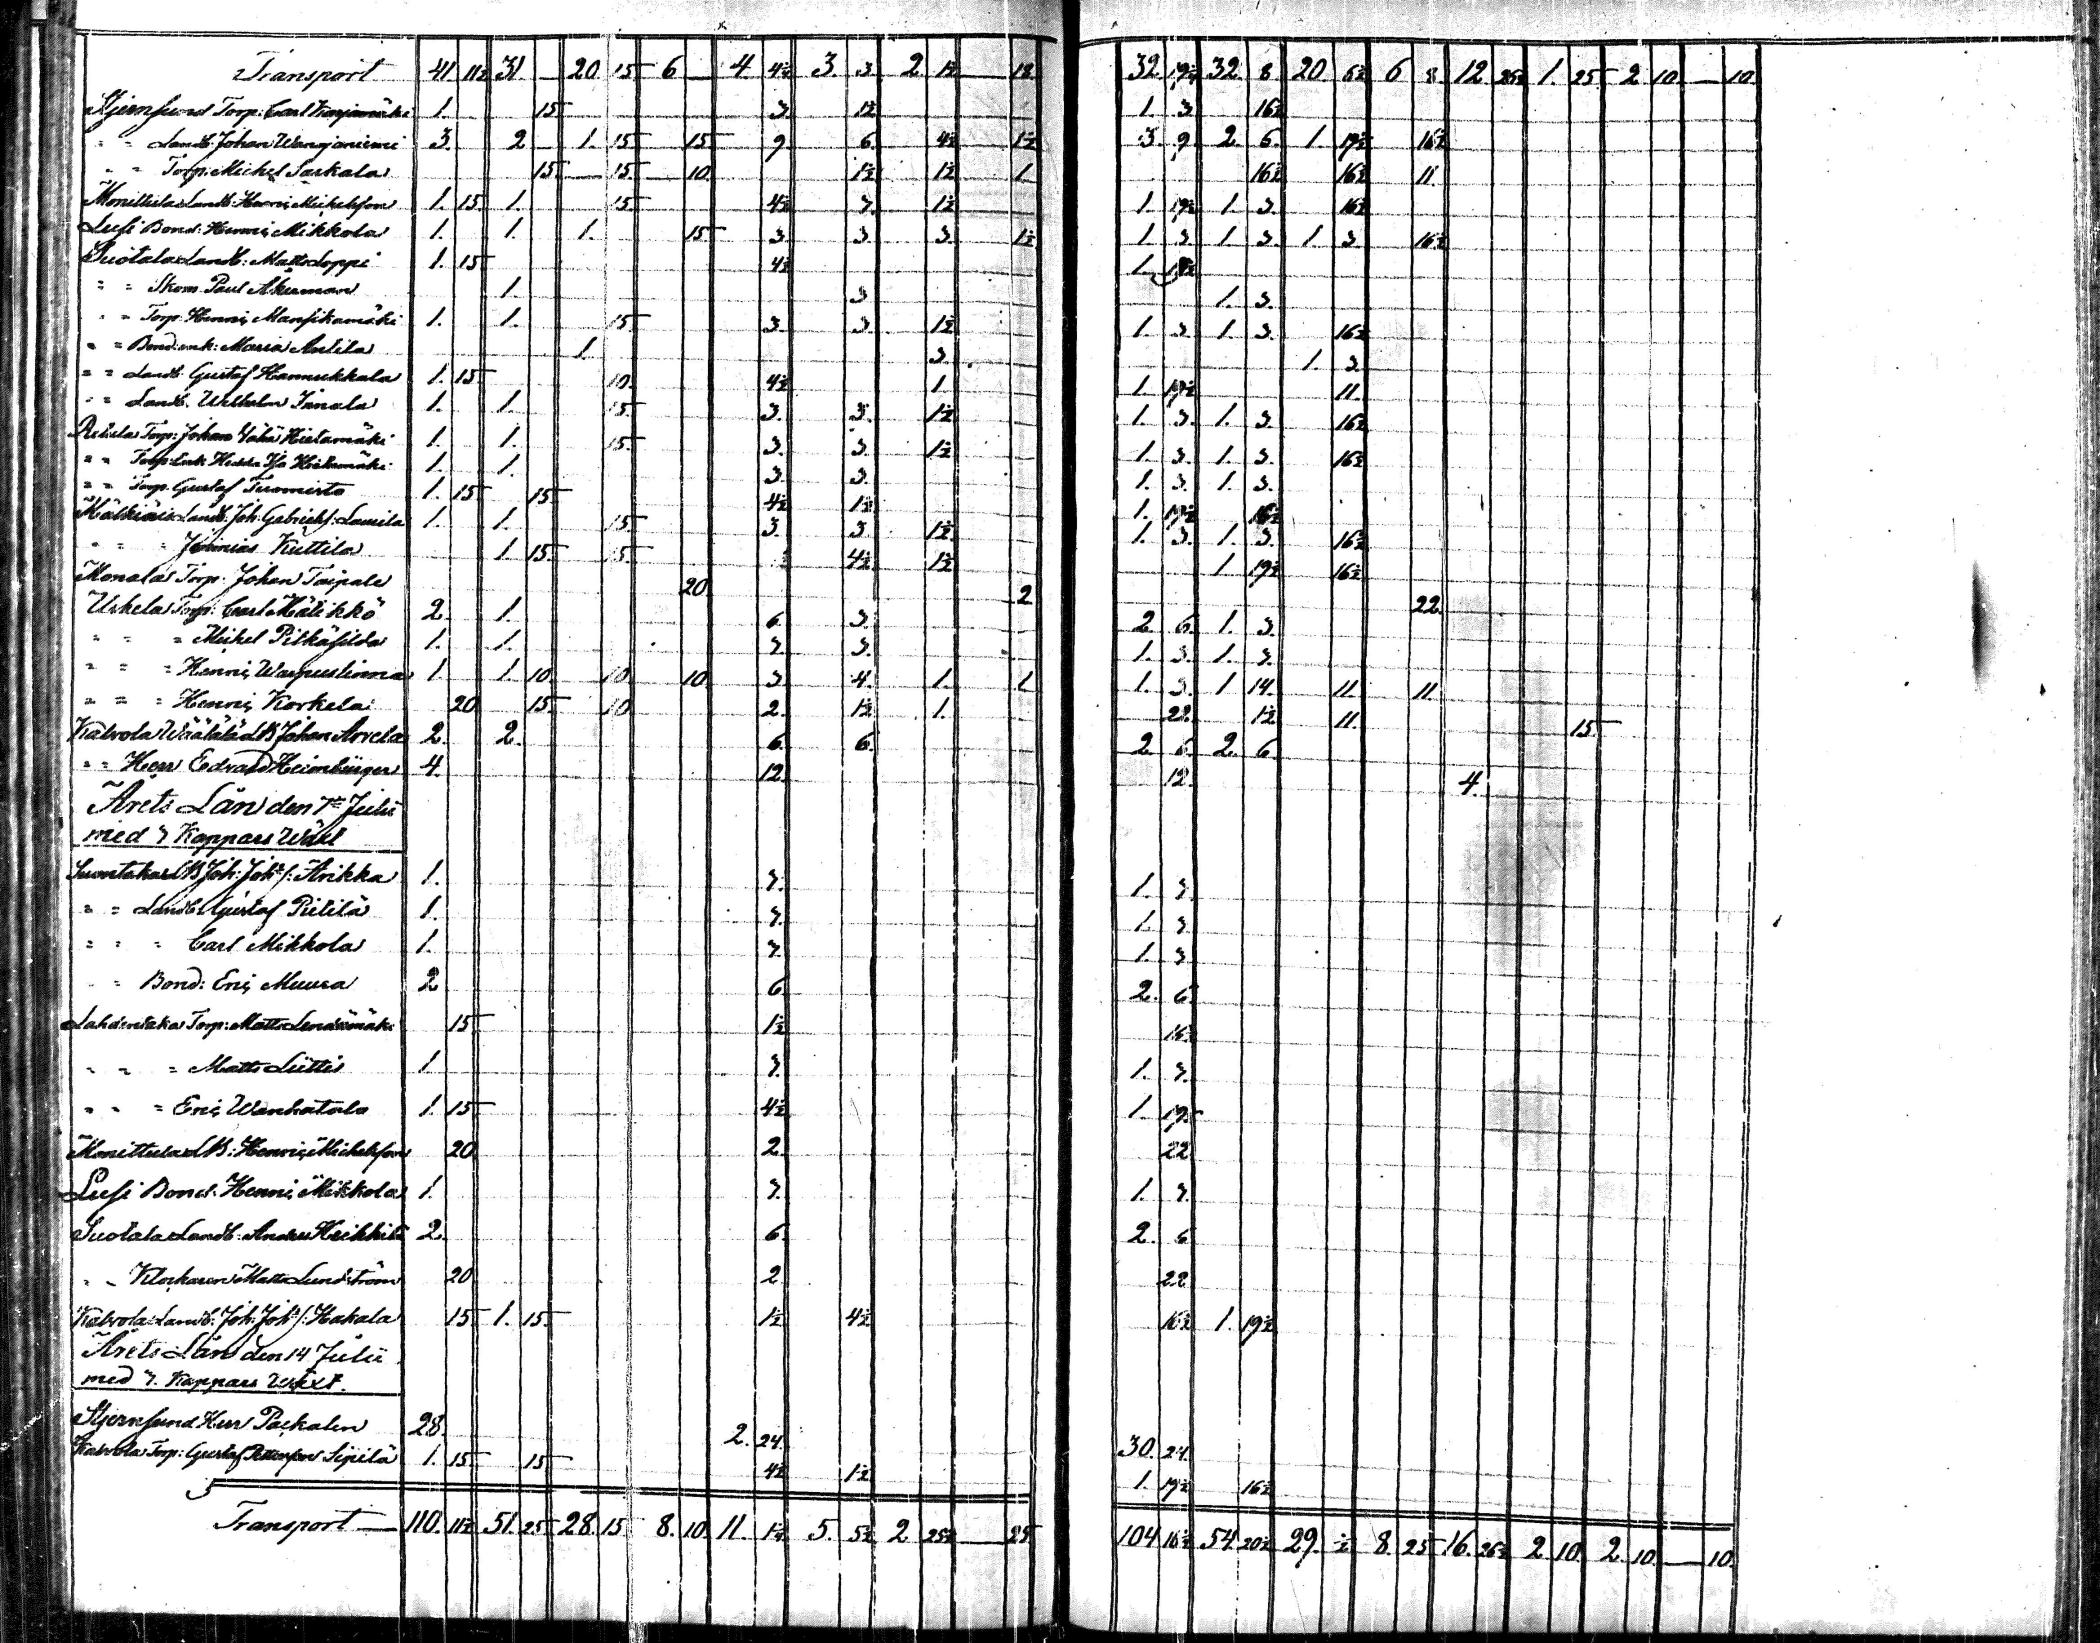 Transport 41 11½ 31. — 20. 15 6 — 4. 4½ 3. 3. 2 1½ — 18. 32 19½ 32. 8. 20 5½ 6 8 12 25½ 1. 25. 2 10 — 10.
Stjernsund Torp: Carl 1. 15. 3. 1½ 1. 3. 16½
" " Landb. Johan Wanjaniemi 3. 2 1. 15. 15. 9. 6. 4½ 1½ 3. 9. 2. 6. 1. 19½ 16½
" " Torp: Michel Sarkala 15. 15. 10. 1½ 1½ 1 16½ 16½ 11.
Monittula Landb. Henric Michelsson 1. 15. 1. 15. 4½ 3. 1½ 1. 19½ 1. 3. 16½
Lusi Bond: Henric Mikkola 1. 1. 1. 15. 3. 3. 3. 1½ 1. 3. 1. 3. 1. 3. 16½
Suotala Landb: Matts Loppi 1. 15. 4½ 1. 19½
" " Skom. Paul Åkerman 1. 3. 1. 3.
" " Torp: Henric Mansikamäki 1. 1. 15. 3. 3. 1½ 1. 3. 1. 3. 16½
" " Bond: enk: Maria Antila 1. 3. 1. 3.
" " Landb. Gustaf Hannukkala 1. 15. 10. 4½ 1. 1. 19½ 11.
" " Landb. Wilhelm Janala 1. 1. 15. 3. 3. 1½ 1. 3. 1. 3. 16½
Torp: Johan Yähä Hietamäki 1. 1. 15. 3. 3. 1½ 1. 3. 1. 3. 16½
" " Torp: Enk Hedda Hietamäki 1. 1. 3. 3. 1. 3. 1. 3.
" " Torp. Gustaf Tuomisto 1. 15. 15. 4½ 1½ 1. 19½ 16½
Landb: Joh: Gabriels: Laurila 1. 1. 15. 3. 3. 1½ 1. 3. 1. 3. 16½
" " " Jeremias Kuttila 1. 15. 15. 4½ 1½ 1 19½ 16½
Monala Torp: Johan Taipale 20. 2 22.
Uskela Torp: Carl Mälikkö 2. 1. 6. 3. 2. 6. 1. 3.
" " " Michel Pitkäsilda 1. 1. 3. 3. 1. 3. 1. 3.
" " " Henric Warpuslinna 1 1. 10. 10. 10. 3. 4. 1. 1 1. 3. 1 14. 11. 11.
" " " Henric Korkela 20. 15. 10. 2. 1½ 1. 22. 1½ 11. 15
Kalvola Wäälälä LB Johan Arvela 2. 2. 6. 6. 2 6. 2. 6.
" " Herr Edvard Heimbürger 4. 12. 12. 4.
Årets Lån den 7de Julii
med 3 Kappars Wäxt
Suontaka LB Joh: Joh:s: Arikka 1. 3. 1. 3.
" " Landb. Gustaf Pietilä 1. 3. 1. 3
" " " Carl Mikkola 1. 3. 1. 3
" " Bond: Eric Muura 2 6 2. 6.
Torp: Matts 15. 1½ 16½
" " " Matts Liettii 1. 3. 1. 3.
" " " Eric Wanhatalo 1. 15 4½ 1. 19½
Monittula LB: Henric Michelsson 20. 2. 22
Lusi Bond: Henric Mikkola 1. 3. 1. 3.
Suotala Landb: Anders Heikkilä 2. 6. 2. 6
" " Klockaren Matts Lundström 20 2 22.
Kalvola Landb. Joh: Joh:s: Hakala 15 1. 15. 1½ 4½ 16½ 1. 19½
Årets Lån den 14 Julii
med 3. Kappars Wäxt.
Stjernsund Herr Packalen 28. 2. 24. 30. 24.
Kalvola Torp: Gustaf Sipilä 1. 15. 15. 4½ 1½ 1. 19½ 16½
Transport — 110. 11½ 51. 25 28. 15 8. 10. 11. 1½ 5. 5½ 2 25½ — 25 104 16½ 54 20½ 29. ½ 8. 25 16. 26½ 2 10. 2. 10. — 10.